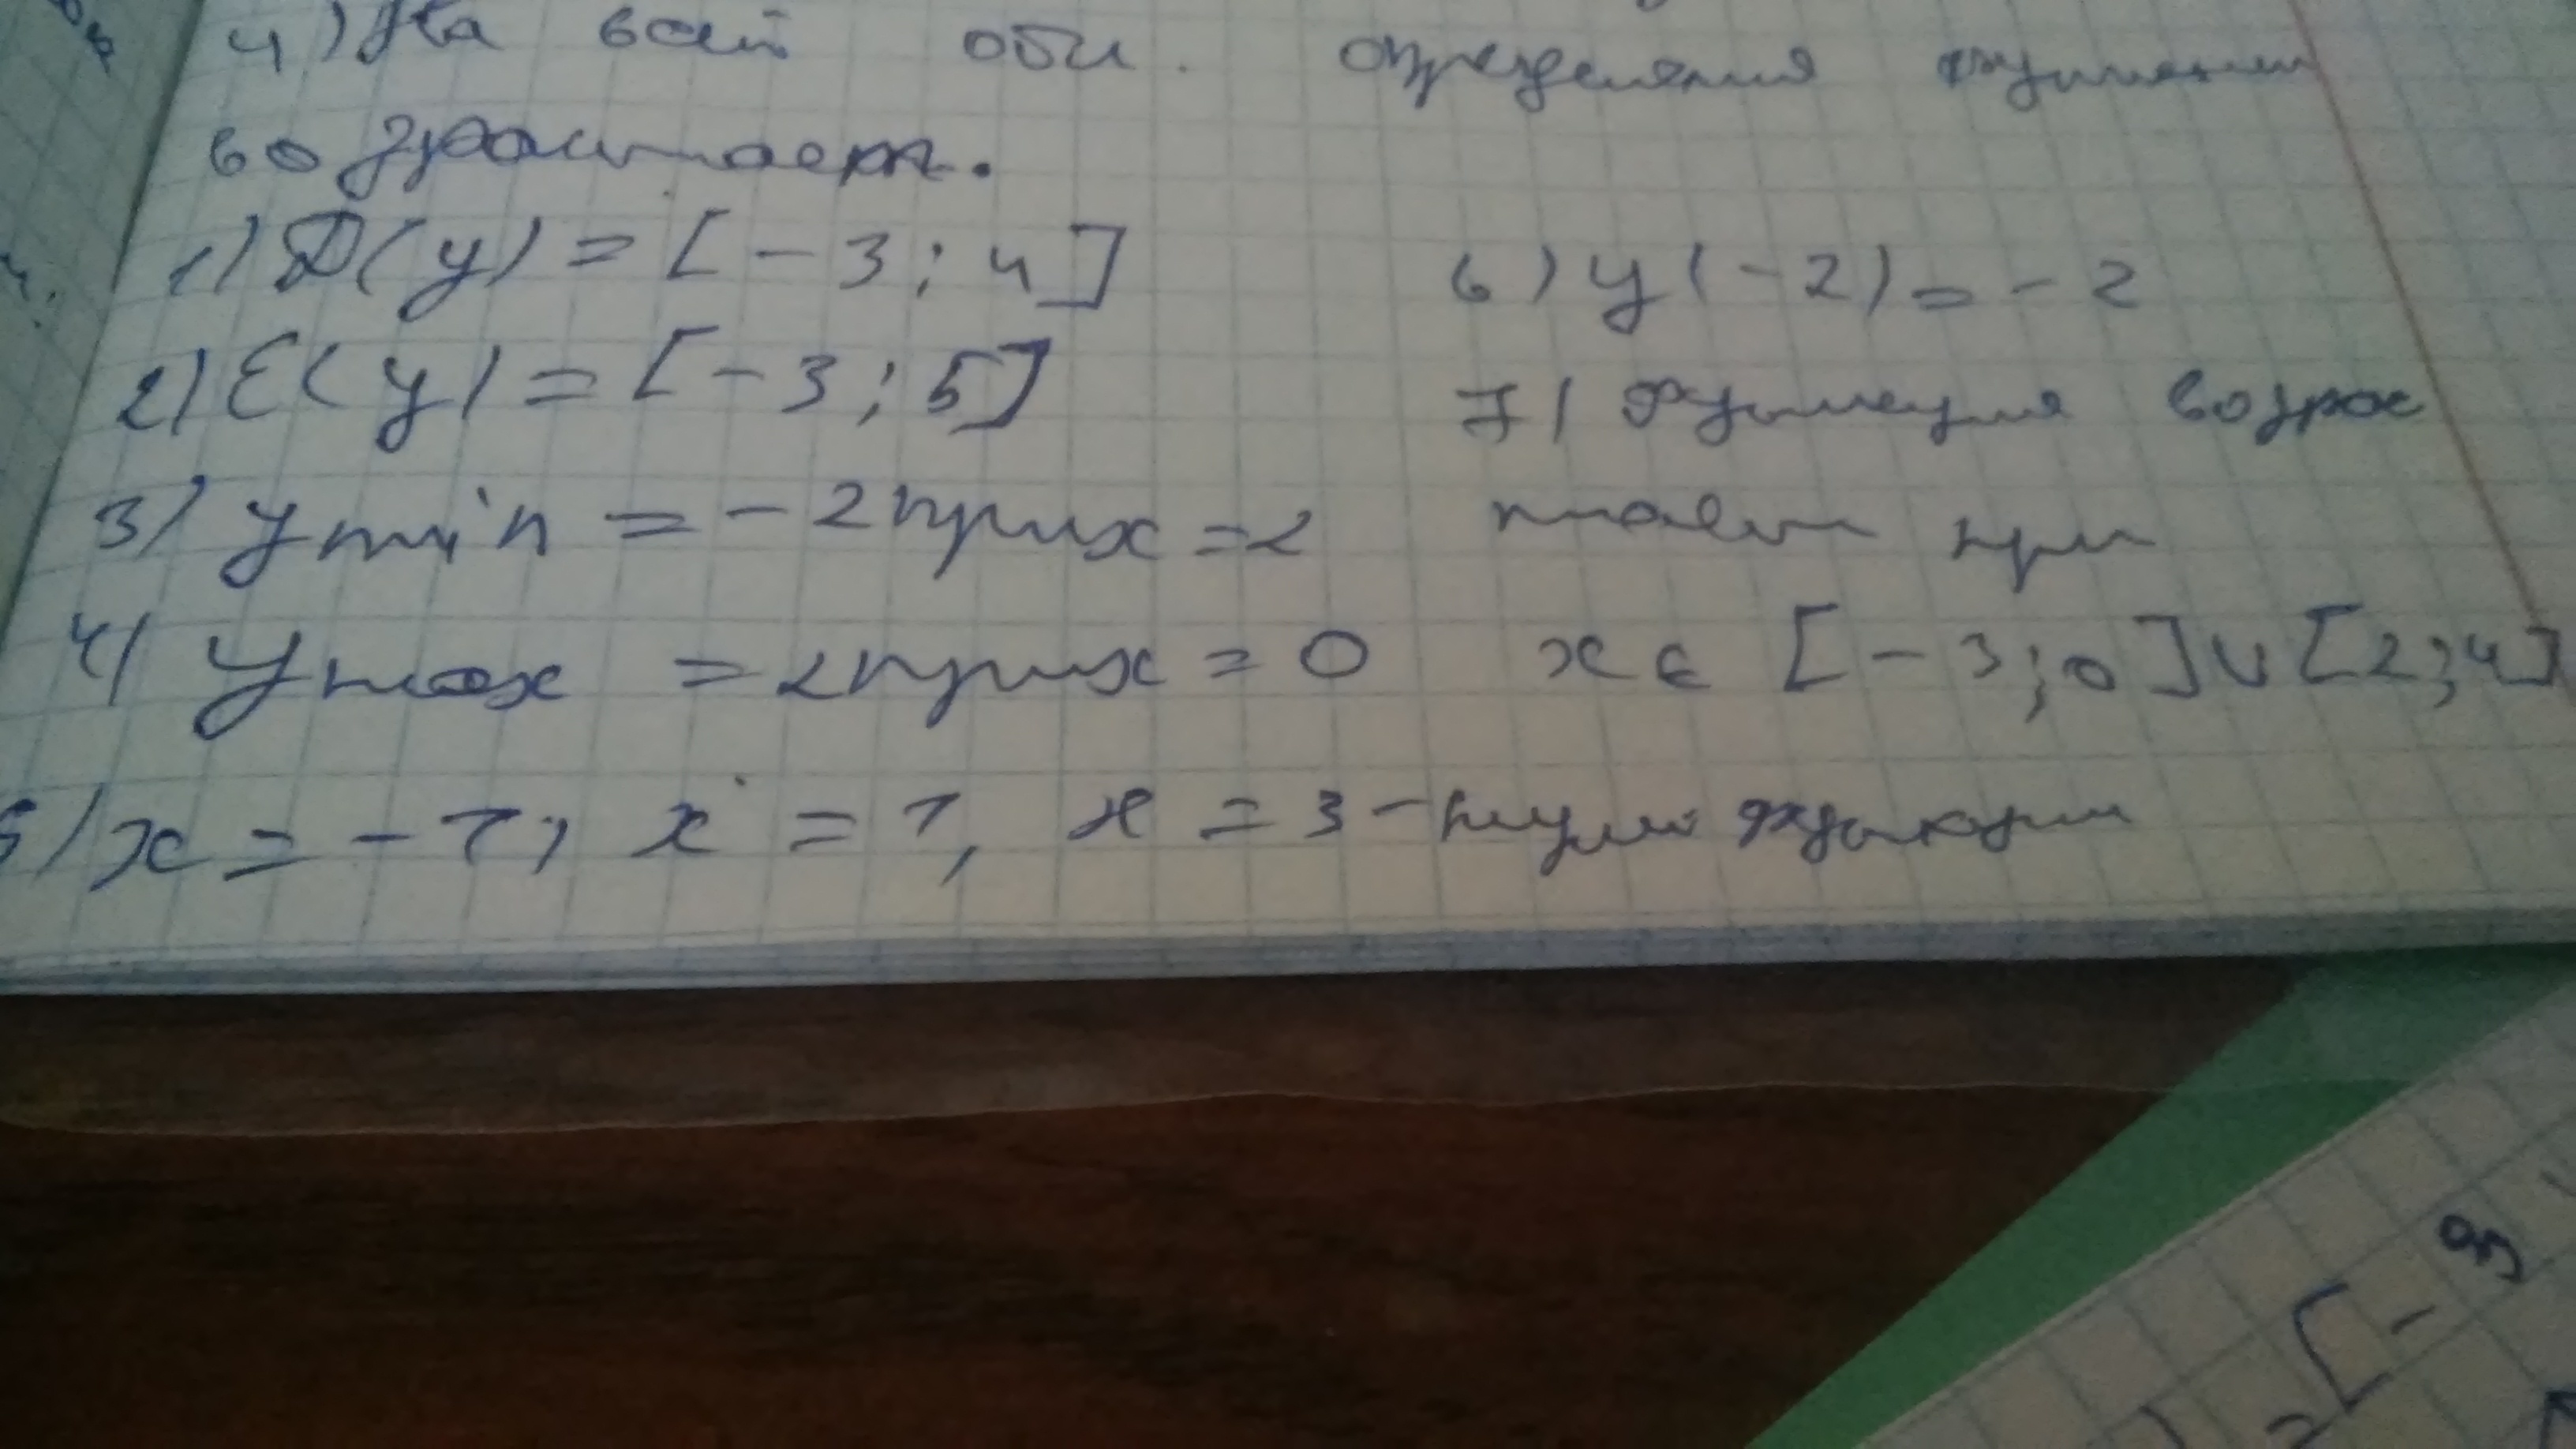 4) На всей обл. определения функции
возрастает.
1) D(y) = [-3; 4]
2) E(y) = [-3; 5]
3) y min = -2 при x = 2
4) y max = 2 при x = 0
5) x = -1, x = 1, x = 3 - нули функции
6) y(-2) = -2
7) Функция возрас
тает при
x ∈ [-3; 0] ∪ [2; 4]
= [-3